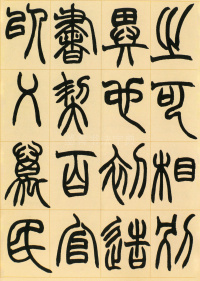 之可相別
異也初造
書契百官
以乂萬民